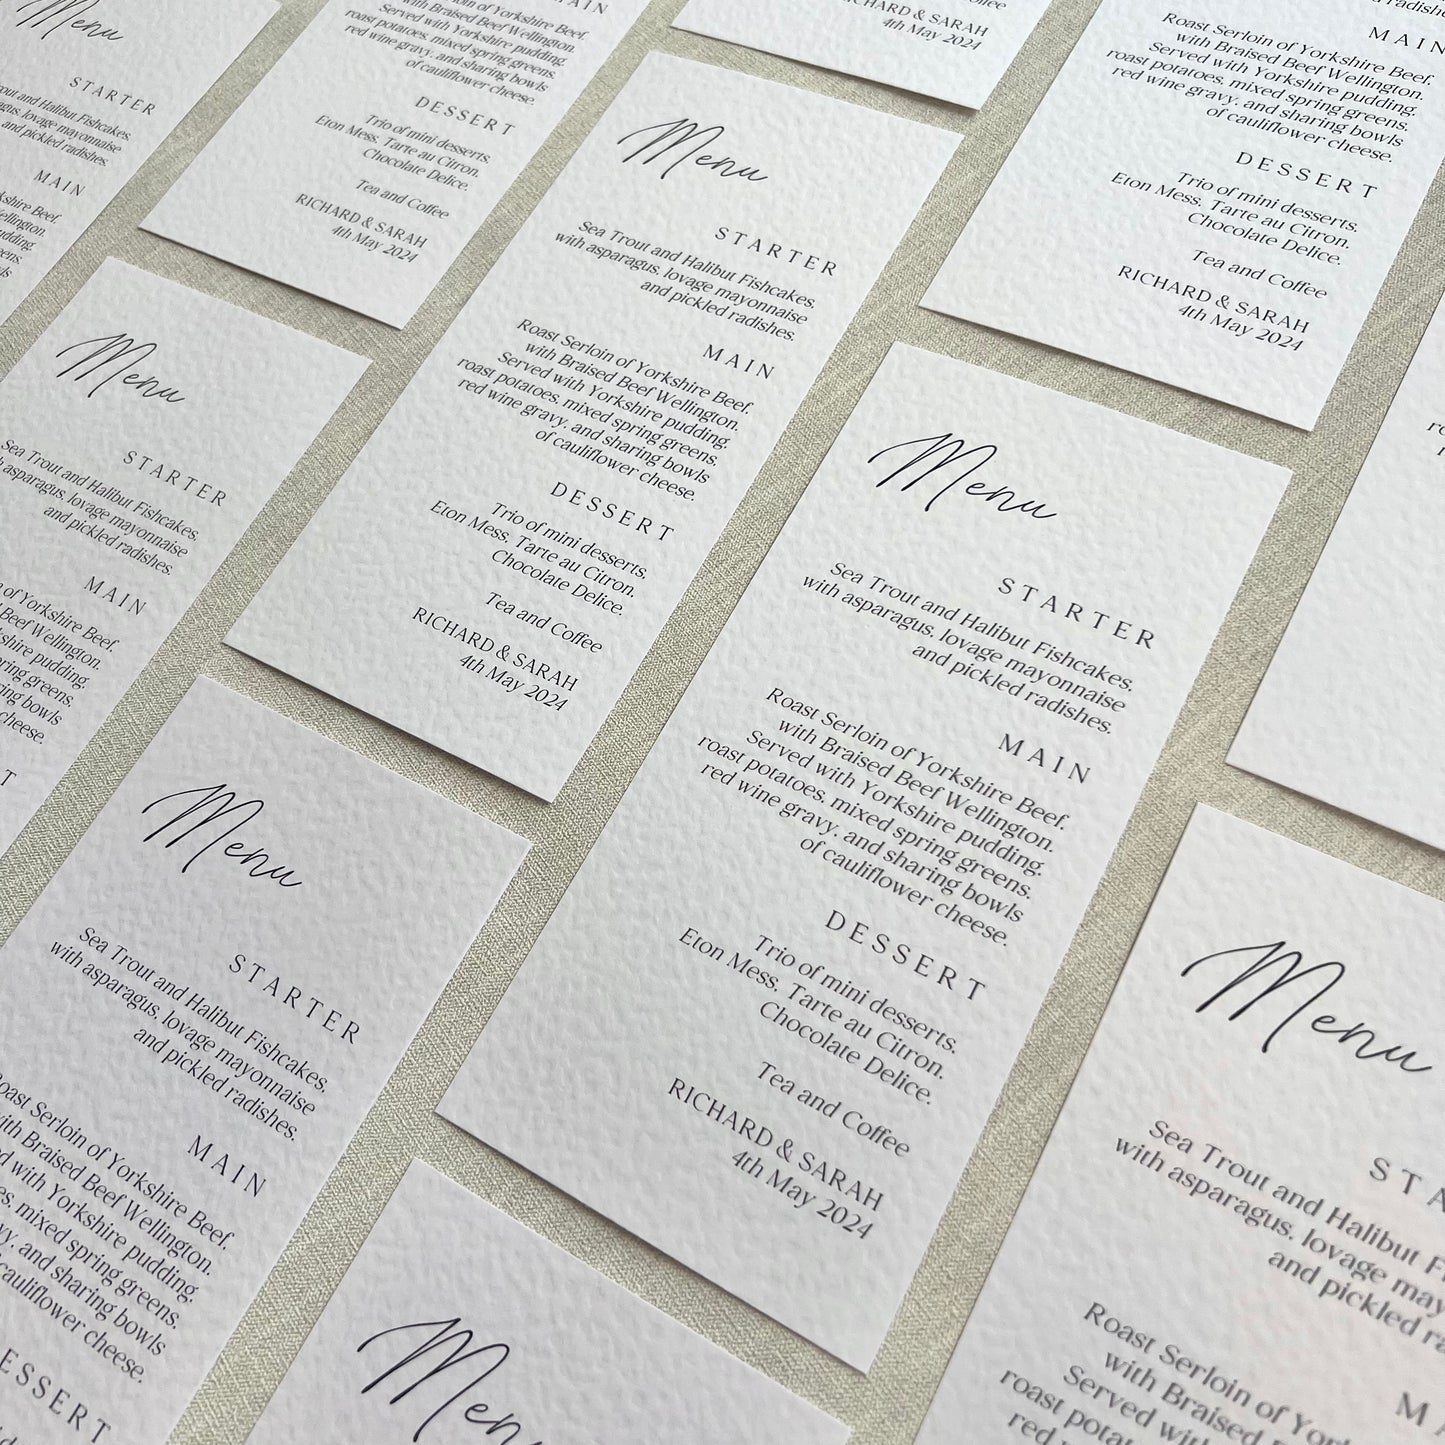 Menu
STARTER
Sea Trout and Halibut Fishcakes,
with asparagus, lovage mayonnaise
and pickled radishes.
MAIN
Roast Serloin of Yorkshire Beef,
with Braised Beef Wellington.
Served with Yorkshire pudding,
roast potatoes, mixed spring greens,
red wine gravy, and sharing bowls
of cauliflower cheese.
DESSERT
Trio of mini desserts,
Eton Mess, Tarte au Citron,
Chocolate Delice.
Tea and Coffee
RICHARD & SARAH
4th May 2024